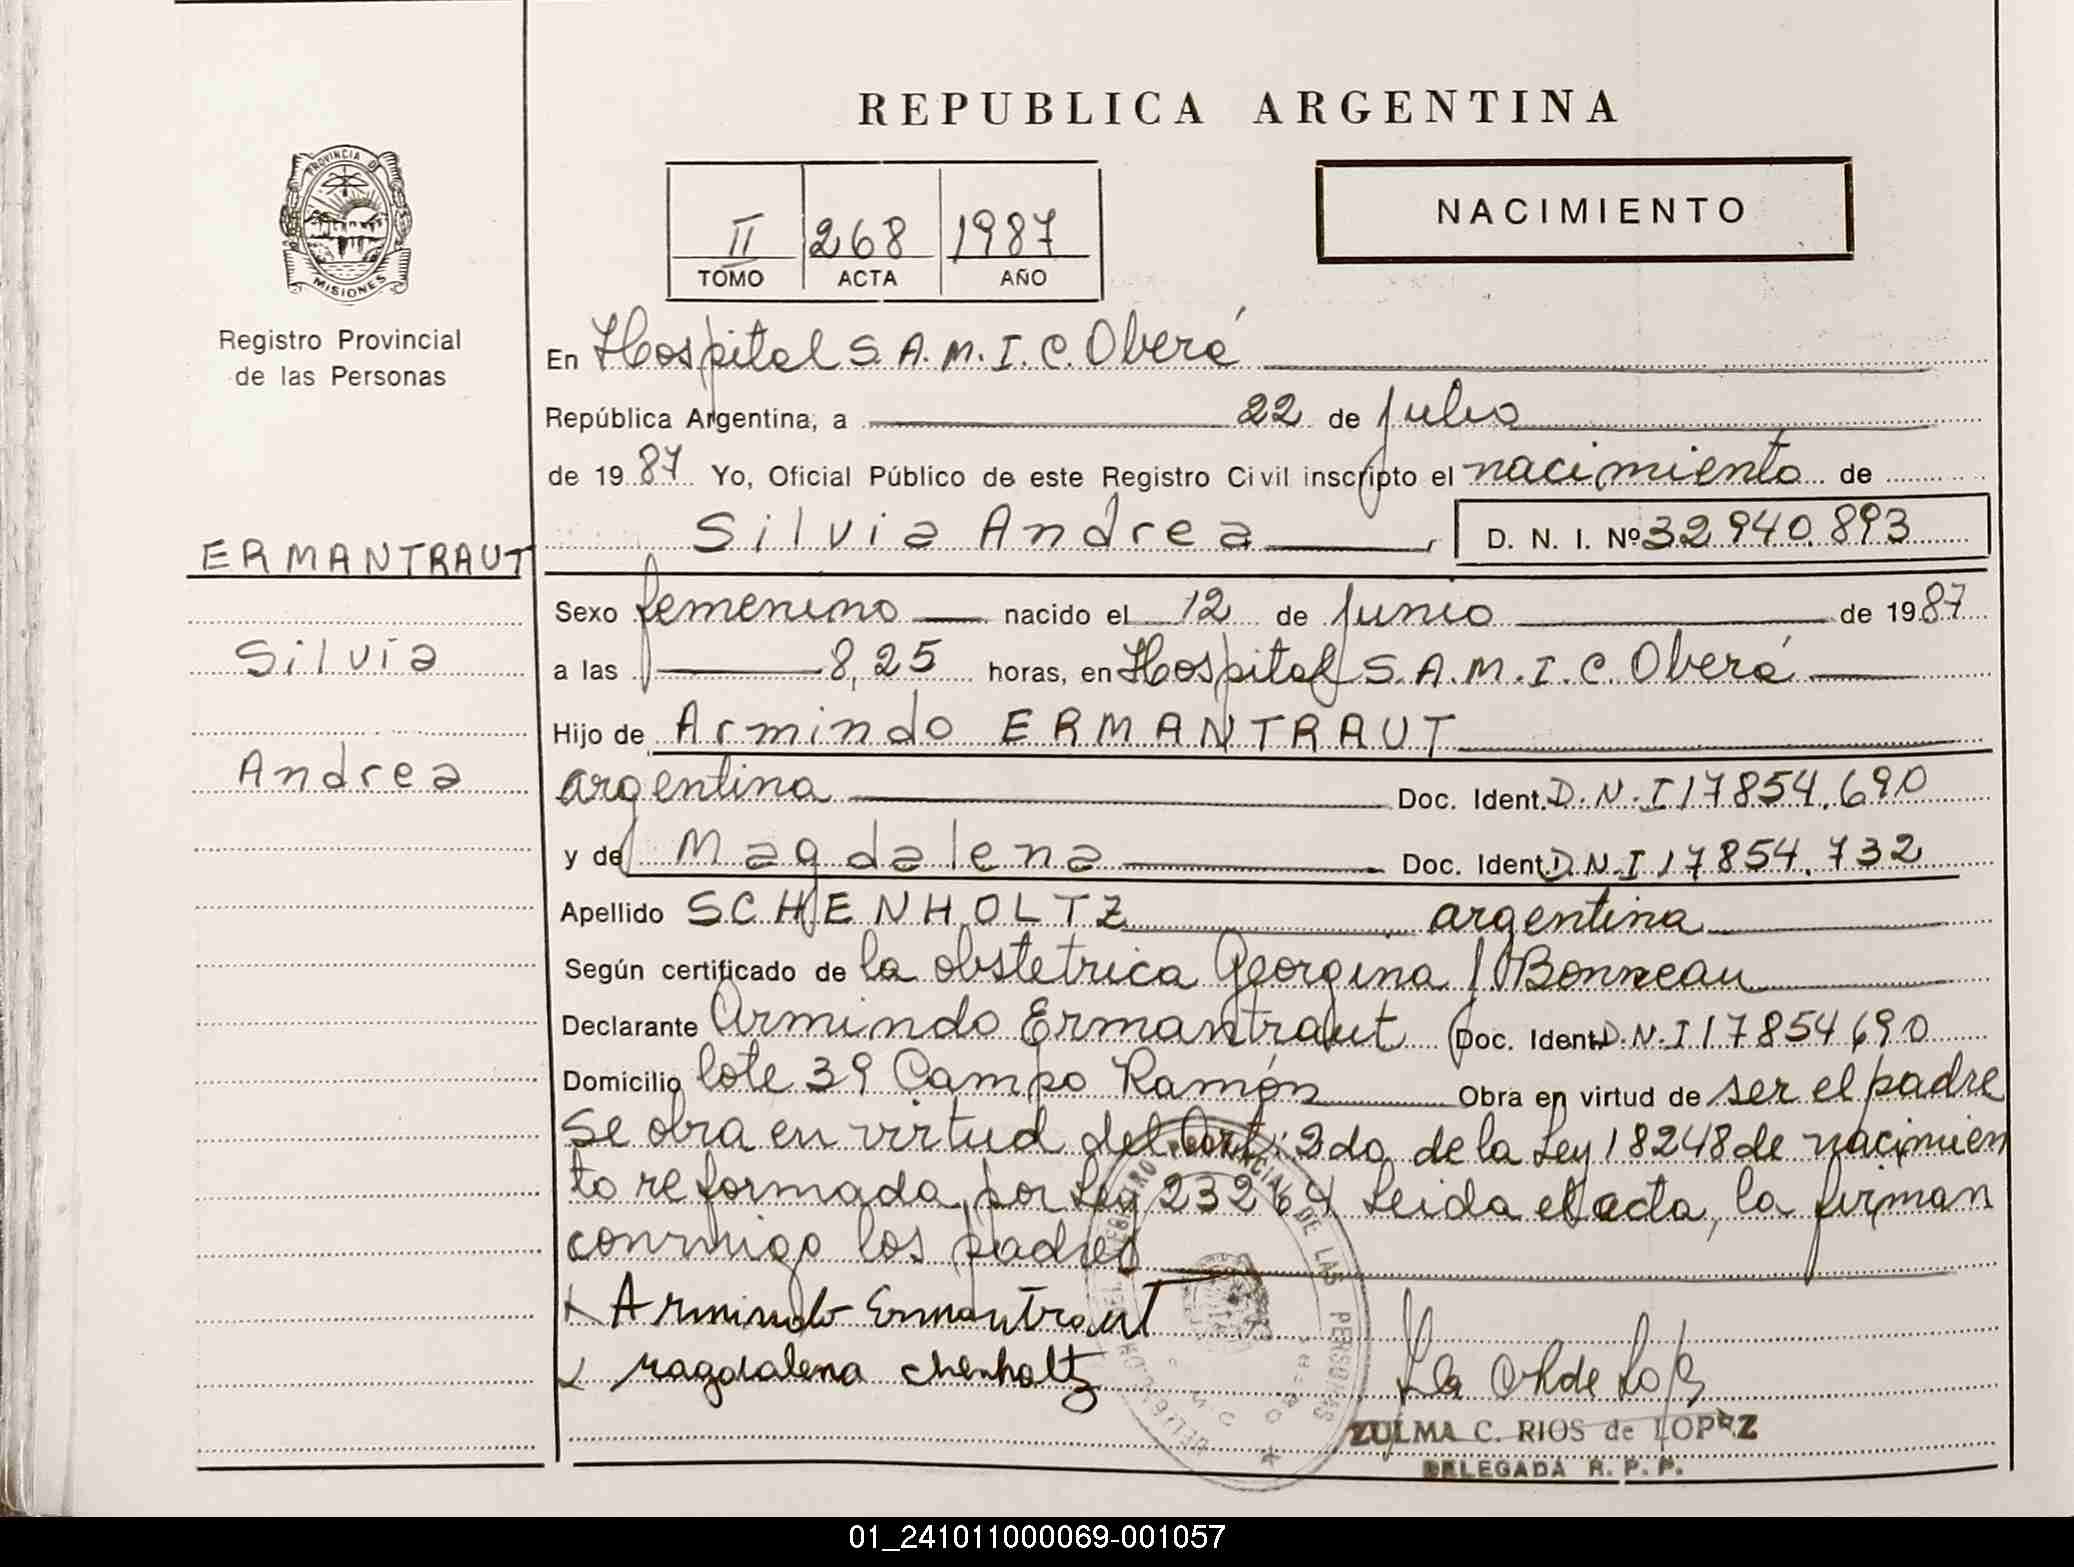 REPUBLICA ARGENTINA
NACIMIENTO
II 268 1987
TOMO ACTA AÑO
PROVINCIA DE
MISIONES
Registro Provincial
de las Personas
ERMANTRAUT
Silvia
Andrea
En Hospital S.A.M.I.C. Oberá
República Argentina, a 22 de julio
de 1987 Yo, Oficial Público de este Registro Civil inscripto el nacimiento de
Silvia Andrea D. N. I. Nº 32.940.893
Sexo femenino nacido el 12 de junio de 1987
a las 8,25 horas, en Hospital S.A.M.I.C. Oberá
Hijo de Armindo ERMANTRAUT
argentina Doc. Ident. D.N.I 17854.690
y de Magdalena Doc. Ident. D.N.I 17854.732
Apellido SCHENHOLTZ argentina
Según certificado de la obstetrica Georgina J. Bonneau
Declarante Armindo Ermantraut Doc. Ident. D.N.I 17854690
Domicilio lote 39 Campo Ramón Obra en virtud de ser el padre
Se obra en virtud del Art. 2do de la Ley 18248 de nacimien
to reformada por Ley 23264 Leida el acta, la firman
conmigo los padres
Armindo Ermantraut
Magdalena chenholtz
ZULMA C. RIOS de LOPEZ
DELEGADA R. P. P.
PROVINCIAL DE LAS PERSONAS
01_241011000069-001057